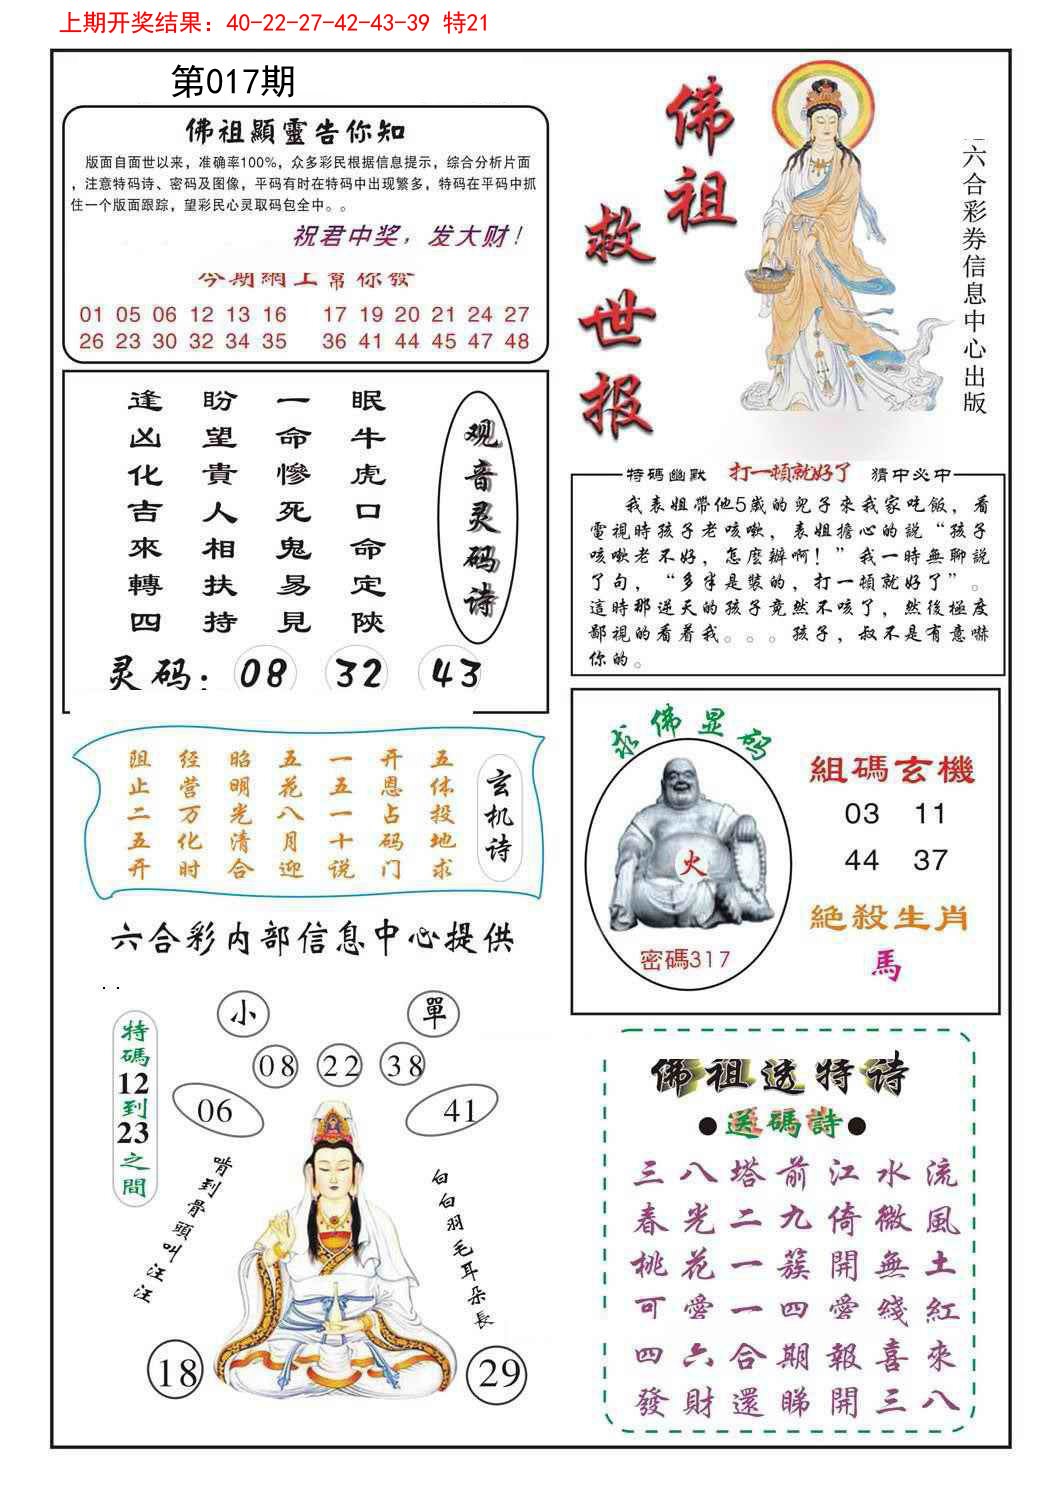 上期开奖结果：40-22-27-42-43-39 特21
第017期
佛祖顯靈告你知
版面自面世以来，准确率100%，众多彩民根据信息提示，综合分析片面
，注意特码诗、密码及图像，平码有时在特码中出现繁多，特码在平码中抓
住一个版面跟踪，望彩民心灵取码包全中。。
祝君中奖，发大财！
今期網上幫你發
01 05 06 12 13 16 17 19 20 21 24 27
26 23 30 32 34 35 36 41 44 45 47 48
佛祖
救世报
六合彩券信息中心出版
逢盼一眠
凶望命牛
化貴慘虎
吉人死口
來相鬼命
轉扶易定
四持見陝
观音灵码诗
灵码：08 32 43
特碼幽默 打一頓就好了 猜中必中
我表姐帶他5歲的兒子來我家吃飯，看
電視時孩子老咳嗽，表姐擔心的説“孩子
咳嗽老不好，怎麼辦啊！”我一時無聊説
了句，“多半是裝的，打一頓就好了”。
這時那逆天的孩子竟然不咳了，然後極度
鄙視的看着我。。。孩子，叔不是有意嚇
你的。
阻经昭五一开五
止营明花五恩体
二万光八一占投
五化清月十码地
开时合迎说门求
玄机诗
求佛显码
火
密碼317
組碼玄機
03 11
44 37
絕殺生肖
馬
六合彩内部信息中心提供
小 單
08 22 38
06 41
特碼12到23之間
啃到骨頭叫汪汪
白白羽毛耳朵長
18 29
佛祖透特诗
●送碼詩●
三八塔前江水流
春光二九倚微風
桃花一簇開無土
可愛一四愛綫紅
四六合期報喜來
發財還睇開三八